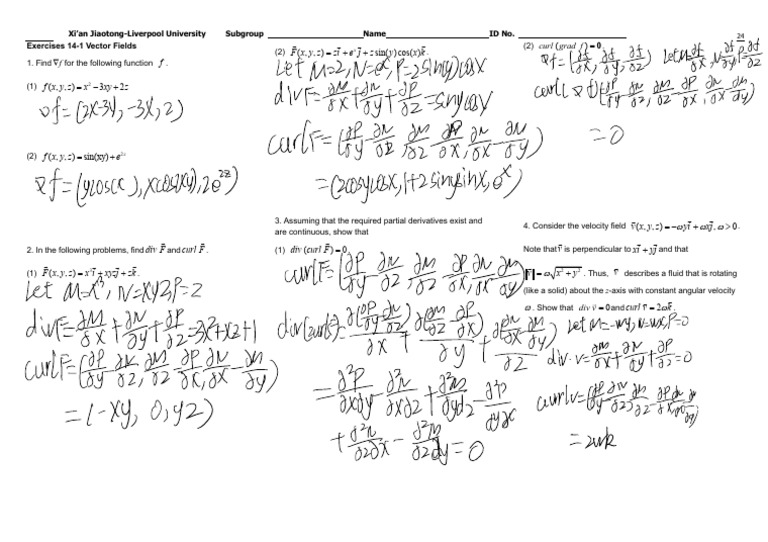 Xi'an Jiaotong-Liverpool University Subgroup Name ID No.
Exercises 14-1 Vector Fields
1. Find ∇f for the following function f.
(1) f(x, y, z) = x² − 3xy + 2z
∇f = (2x-3y, -3x, 2)
(2) f(x, y, z) = sin(xy) + e²ᶻ
∇f = (ycos(x ), xcos(xy), 2e²ᶻ)
2. In the following problems, find div F⃗ and curl F⃗.
(1) F⃗(x, y, z) = x³i⃗ + xyzj⃗ + zk⃗.
Let M=x³, N=xyz, P=z
divF = ∂M/∂x + ∂N/∂y + ∂P/∂z = 3x²+xz+1
curlF = (∂P/∂y - ∂N/∂z, ∂M/∂z - ∂P/∂x, ∂N/∂x - ∂M/∂y)
= (-xy, 0, yz)
(2) F⃗(x, y, z) = zi⃗ + eˣj⃗ + z sin(y) cos(x)k⃗.
Let M=z, N=eˣ, P=zsin(y)cosx
divF = ∂M/∂x + ∂N/∂y + ∂P/∂z = sinycosx
curlF = (∂P/∂y - ∂N/∂z, ∂M/∂z - ∂P/∂x, ∂N/∂x - ∂M/∂y)
= (zcosycosx, 1+zsinysinx, eˣ)
3. Assuming that the required partial derivatives exist and
are continuous, show that
(1) div (curl F⃗) = 0
curlF = (∂P/∂y - ∂N/∂z, ∂M/∂z - ∂P/∂x, ∂N/∂x - ∂M/∂y)
div(curlF) = ∂(∂P/∂y - ∂N/∂z)/∂x + ∂(∂M/∂z - ∂P/∂x)/∂y + ∂(∂N/∂x - ∂M/∂y)/∂z
= ∂²P/∂x∂y - ∂²N/∂x∂z + ∂²M/∂y∂z - ∂²P/∂y∂x
+ ∂²N/∂z∂x - ∂²M/∂z∂y = 0
(2) curl (grad f) = 0
∇f = (∂f/∂x, ∂f/∂y, ∂f/∂z) Let M=∂f/∂x, N=∂f/∂y, P=∂f/∂z
curl(∇f) = (∂P/∂y - ∂N/∂z, ∂M/∂z - ∂P/∂x, ∂N/∂x - ∂M/∂y)
= 0
4. Consider the velocity field v⃗(x, y, z) = −ωyi⃗ + ωxj⃗, ω > 0.
Note that v⃗ is perpendicular to xi⃗ + yj⃗ and that
‖v⃗‖ = ω√(x² + y²). Thus, v⃗ describes a fluid that is rotating
(like a solid) about the z-axis with constant angular velocity
ω. Show that div v⃗ = 0 and curl v⃗ = 2ωk⃗.
Let M=-wy, N=wx, P=0
div·v = ∂M/∂x + ∂N/∂y + ∂P/∂z = 0
curlv = (∂P/∂y - ∂N/∂z, ∂M/∂z - ∂P/∂x, ∂N/∂x - ∂M/∂y)
= 2wk